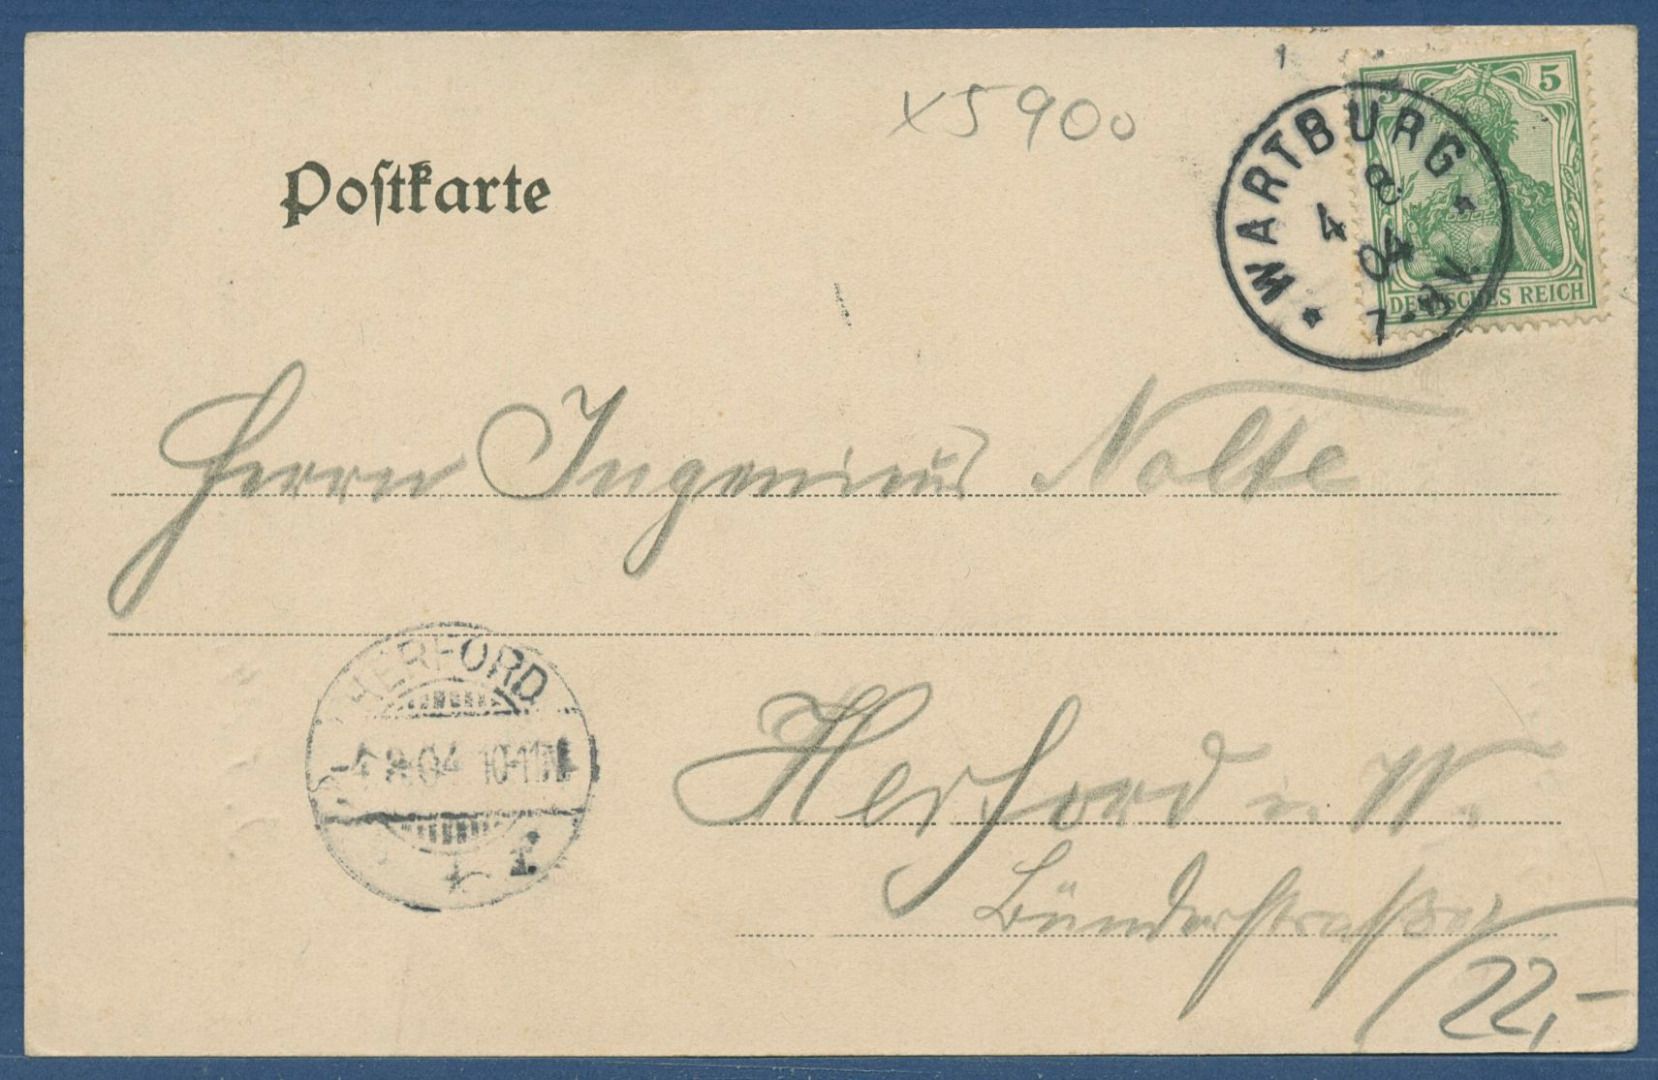 x5900
Postkarte
5 5
DEUTSCHES REICH
* WARTBURG *
4 8 04
7-8V.
Herrn Ingenieur Nolte
HERFORD
-4.8.04 10-11
* 1.
Herford i. W.
Bünderstraße
22,-